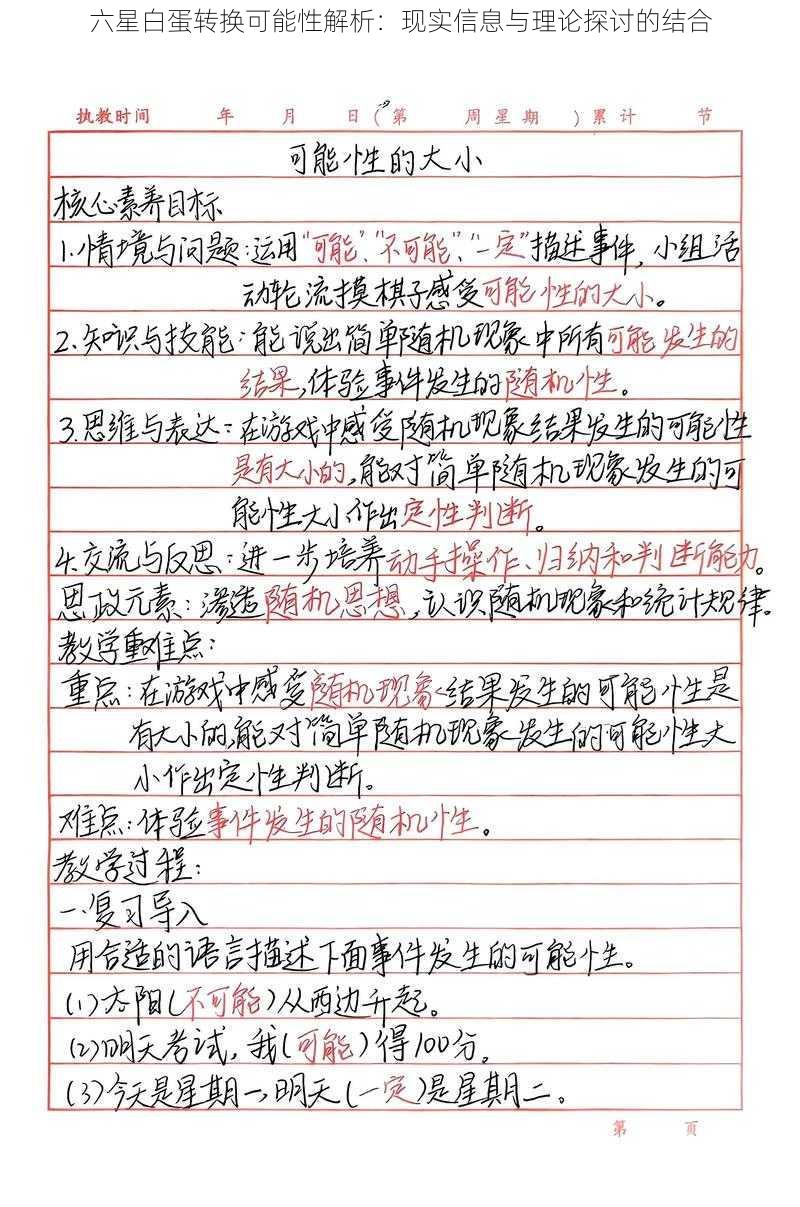 六星白蛋转换可能性解析：现实信息与理论探讨的结合
执教时间 年 月 日(第 周星期 )累计 节
可能性的大小
核心素养目标
1.情境与问题:运用"可能"、"不可能"、"一定"描述事件,小组活
动轮流摸棋子感受可能性的大小。
2.知识与技能:能说出简单随机现象中所有可能发生的
结果,体验事件发生的随机性。
3.思维与表达:在游戏中感受随机现象结果发生的可能性
是有大小的,能对简单随机现象发生的可
能性大小作出定性判断。
4.交流与反思:进一步培养动手操作、归纳和判断能力。
思政元素:渗透随机思想,认识随机现象和统计规律。
教学重难点:
重点:在游戏中感受随机现象结果发生的可能性是
有大小的,能对简单随机现象发生的可能性大
小作出定性判断。
难点:体验事件发生的随机性。
教学过程:
一、复习导入
用合适的语言描述下面事件发生的可能性。
(1)太阳(不可能)从西边升起。
(2)明天考试,我(可能)得100分。
(3)今天是星期一,明天(一定)是星期二。
第 页